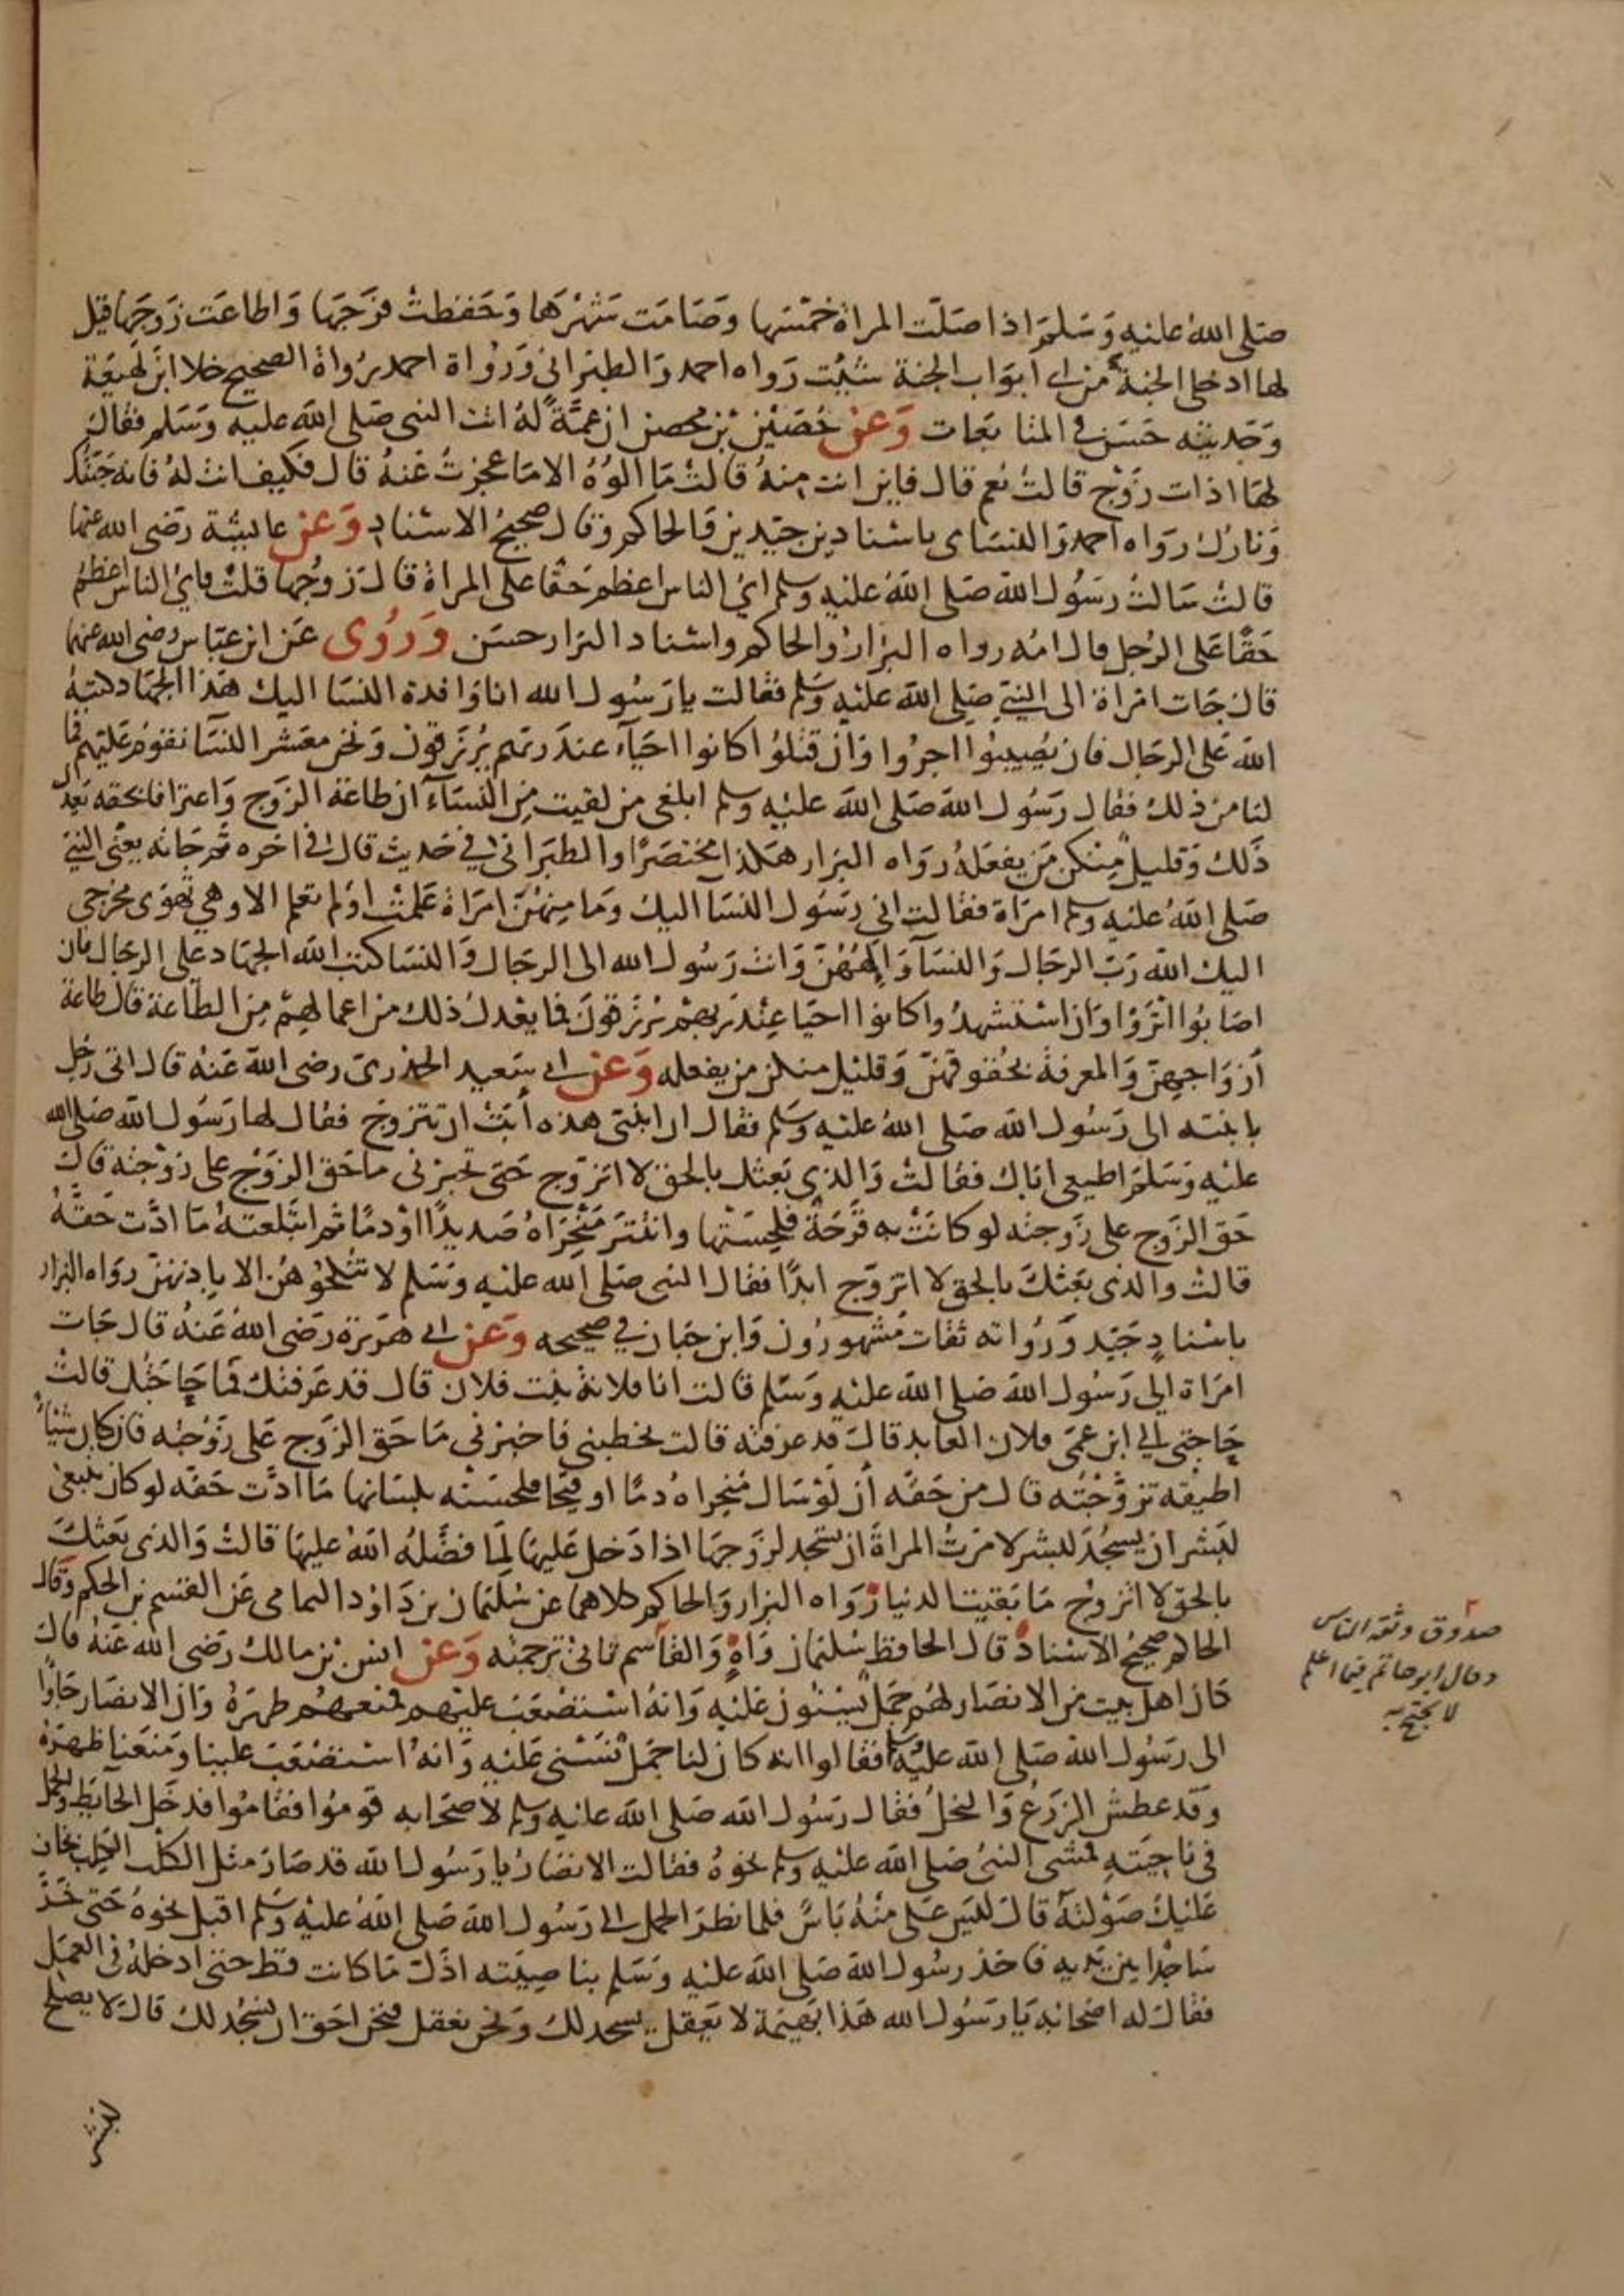 صلى الله عليه وسلم اذا صلت المراة خمسها وصامت شهرها وحفظت فرجها واطاعت زوجها قيل
لها ادخلي الجنة من اي ابواب الجنة شيت رواه احمد والطبراني ورواة احمد رواة الصحيح خلا ابن لهيعة
وحديثه حسن في المتابعات وعن حصين بن محصن ان عمة له اتت النبي صلى الله عليه وسلم فقال
لها اذات زوج قالت نعم قال فاين انت منه قالت ما الوه الا ما عجزت عنه قال فكيف انت له فانه جنتك
ونارك رواه احمد والنساى باسنادين جيدين والحاكم وقال صحيح الاسناد وعن عايشة رضي الله عنها
قالت سالت رسول الله صلى الله عليه وسلم اي الناس اعظم حقا على المراة قال زوجها قلت فاي الناس اعظم
حقا على الرجل قال امه رواه البزار والحاكم واسناد البزار حسن وروى عن ابن عباس رضي الله عنهما
قال جات امراة الى النبي صلى الله عليه وسلم فقالت يا رسول الله انا وافدة النسا اليك هذا الجهاد كتبه
الله على الرجال فان يصيبوا اجروا وان قتلوا كانوا احياء عند ربهم يرزقون ونحن معشر النسا نقوم عليهم فما
لنا من ذلك فقال رسول الله صلى الله عليه وسلم ابلغي من لقيت من النساء ان طاعة الزوج واعترافا بحقه يعدل
ذلك وقليل منكن من يفعله رواه البزار هكذا مختصرا والطبراني في حديث قال في اخره ثم جاته يعني النبي
صلى الله عليه وسلم امراة فقالت اني رسول النسا اليك وما منهن امراة علمت او لم تعلم الا وهي تهوى مخرجي
اليك الله رب الرجال والنساء والههن وانت رسول الله الى الرجال والنسا كتب الله الجهاد على الرجال فان
اصابوا اثروا وان استشهدوا كانوا احيا عند ربهم يرزقون فما يعدل ذلك من اعمالهم من الطاعة قال طاعة
ازواجهن والمعرفة بحقوقهن وقليل منكن من يفعله وعن ابي سعيد الخدري رضي الله عنه قال اتى رجل
بابنته الى رسول الله صلى الله عليه وسلم فقال ان ابنتي هذه ابت ان تتزوج فقال لها رسول الله صلى الله
عليه وسلم اطيعي اباك فقالت والذي بعثك بالحق لا اتزوج حتى تخبرني ما حق الزوج على زوجته قال
حق الزوج على زوجته لو كانت به قرحة فلحستها وانتثر منخراه صديدا او دما ثم ابتلعته ما ادت حقه
قالت والذي بعثك بالحق لا اتزوج ابدا فقال النبي صلى الله عليه وسلم لا تنكحوهن الا باذنهن رواه البزار
باسناد جيد ورواته ثقات مشهورون وابن حبان في صحيحه وعن ابي هريرة رضي الله عنه قال جات
امراة الى رسول الله صلى الله عليه وسلم قالت انا فلانة بنت فلان قال قد عرفتك فما حاجتك قالت
حاجتي الي ابن عمي فلان العابد قال قد عرفته قالت يخطبني فاخبرني ما حق الزوج على زوجته فان كان شيئا
اطيقه تزوجته قال من حقه ان لو سال منخراه دما او قيحا فلحسته بلسانها ما ادت حقه لو كان ينبغي
لبشر ان يسجد لبشر لامرت المراة ان تسجد لزوجها اذا دخل عليها لما فضله الله عليها قالت والذي بعثك
بالحق لا اتزوج ما بقيت الدنيا رواه البزار والحاكم كلاهما عن سليمان بن داود اليمامي عن القسم بن الحكم وقال
الحاكم صحيح الاسناد قال الحافظ سليمان واه والقاسم تاتي ترجمته وعن انس بن مالك رضي الله عنه قال
كان اهل بيت من الانصار لهم جمل يسنون عليه وانه استصعب عليهم فمنعهم ظهره وان الانصار جاوا
الى رسول الله صلى الله عليه وسلم فقالوا انه كان لنا جمل نسنى عليه وانه استصعب علينا ومنعنا ظهره
وقد عطش الزرع والنخل فقال رسول الله صلى الله عليه وسلم لاصحابه قوموا فقاموا فدخل الحايط والجمل
في ناحيته فمشى النبي صلى الله عليه وسلم نحوه فقالت الانصار يا رسول الله قد صار مثل الكلب الكلب نخاف
عليك صولته قال ليس علي منه باس فلما نظر الجمل الى رسول الله صلى الله عليه وسلم اقبل نحوه حتى خر
ساجدا بين يديه فاخذ رسول الله صلى الله عليه وسلم بناصيته اذل ما كانت قط حتى ادخله في العمل
فقال له اصحابه يا رسول الله هذا بهيمة لا يعقل يسجد لك ونحن نعقل فنحن احق ان نسجد لك قال لا يصلح
لبشر
صدوق وثقه الناس
وقال ابو حاتم فيما اعلم
لا يحتج به